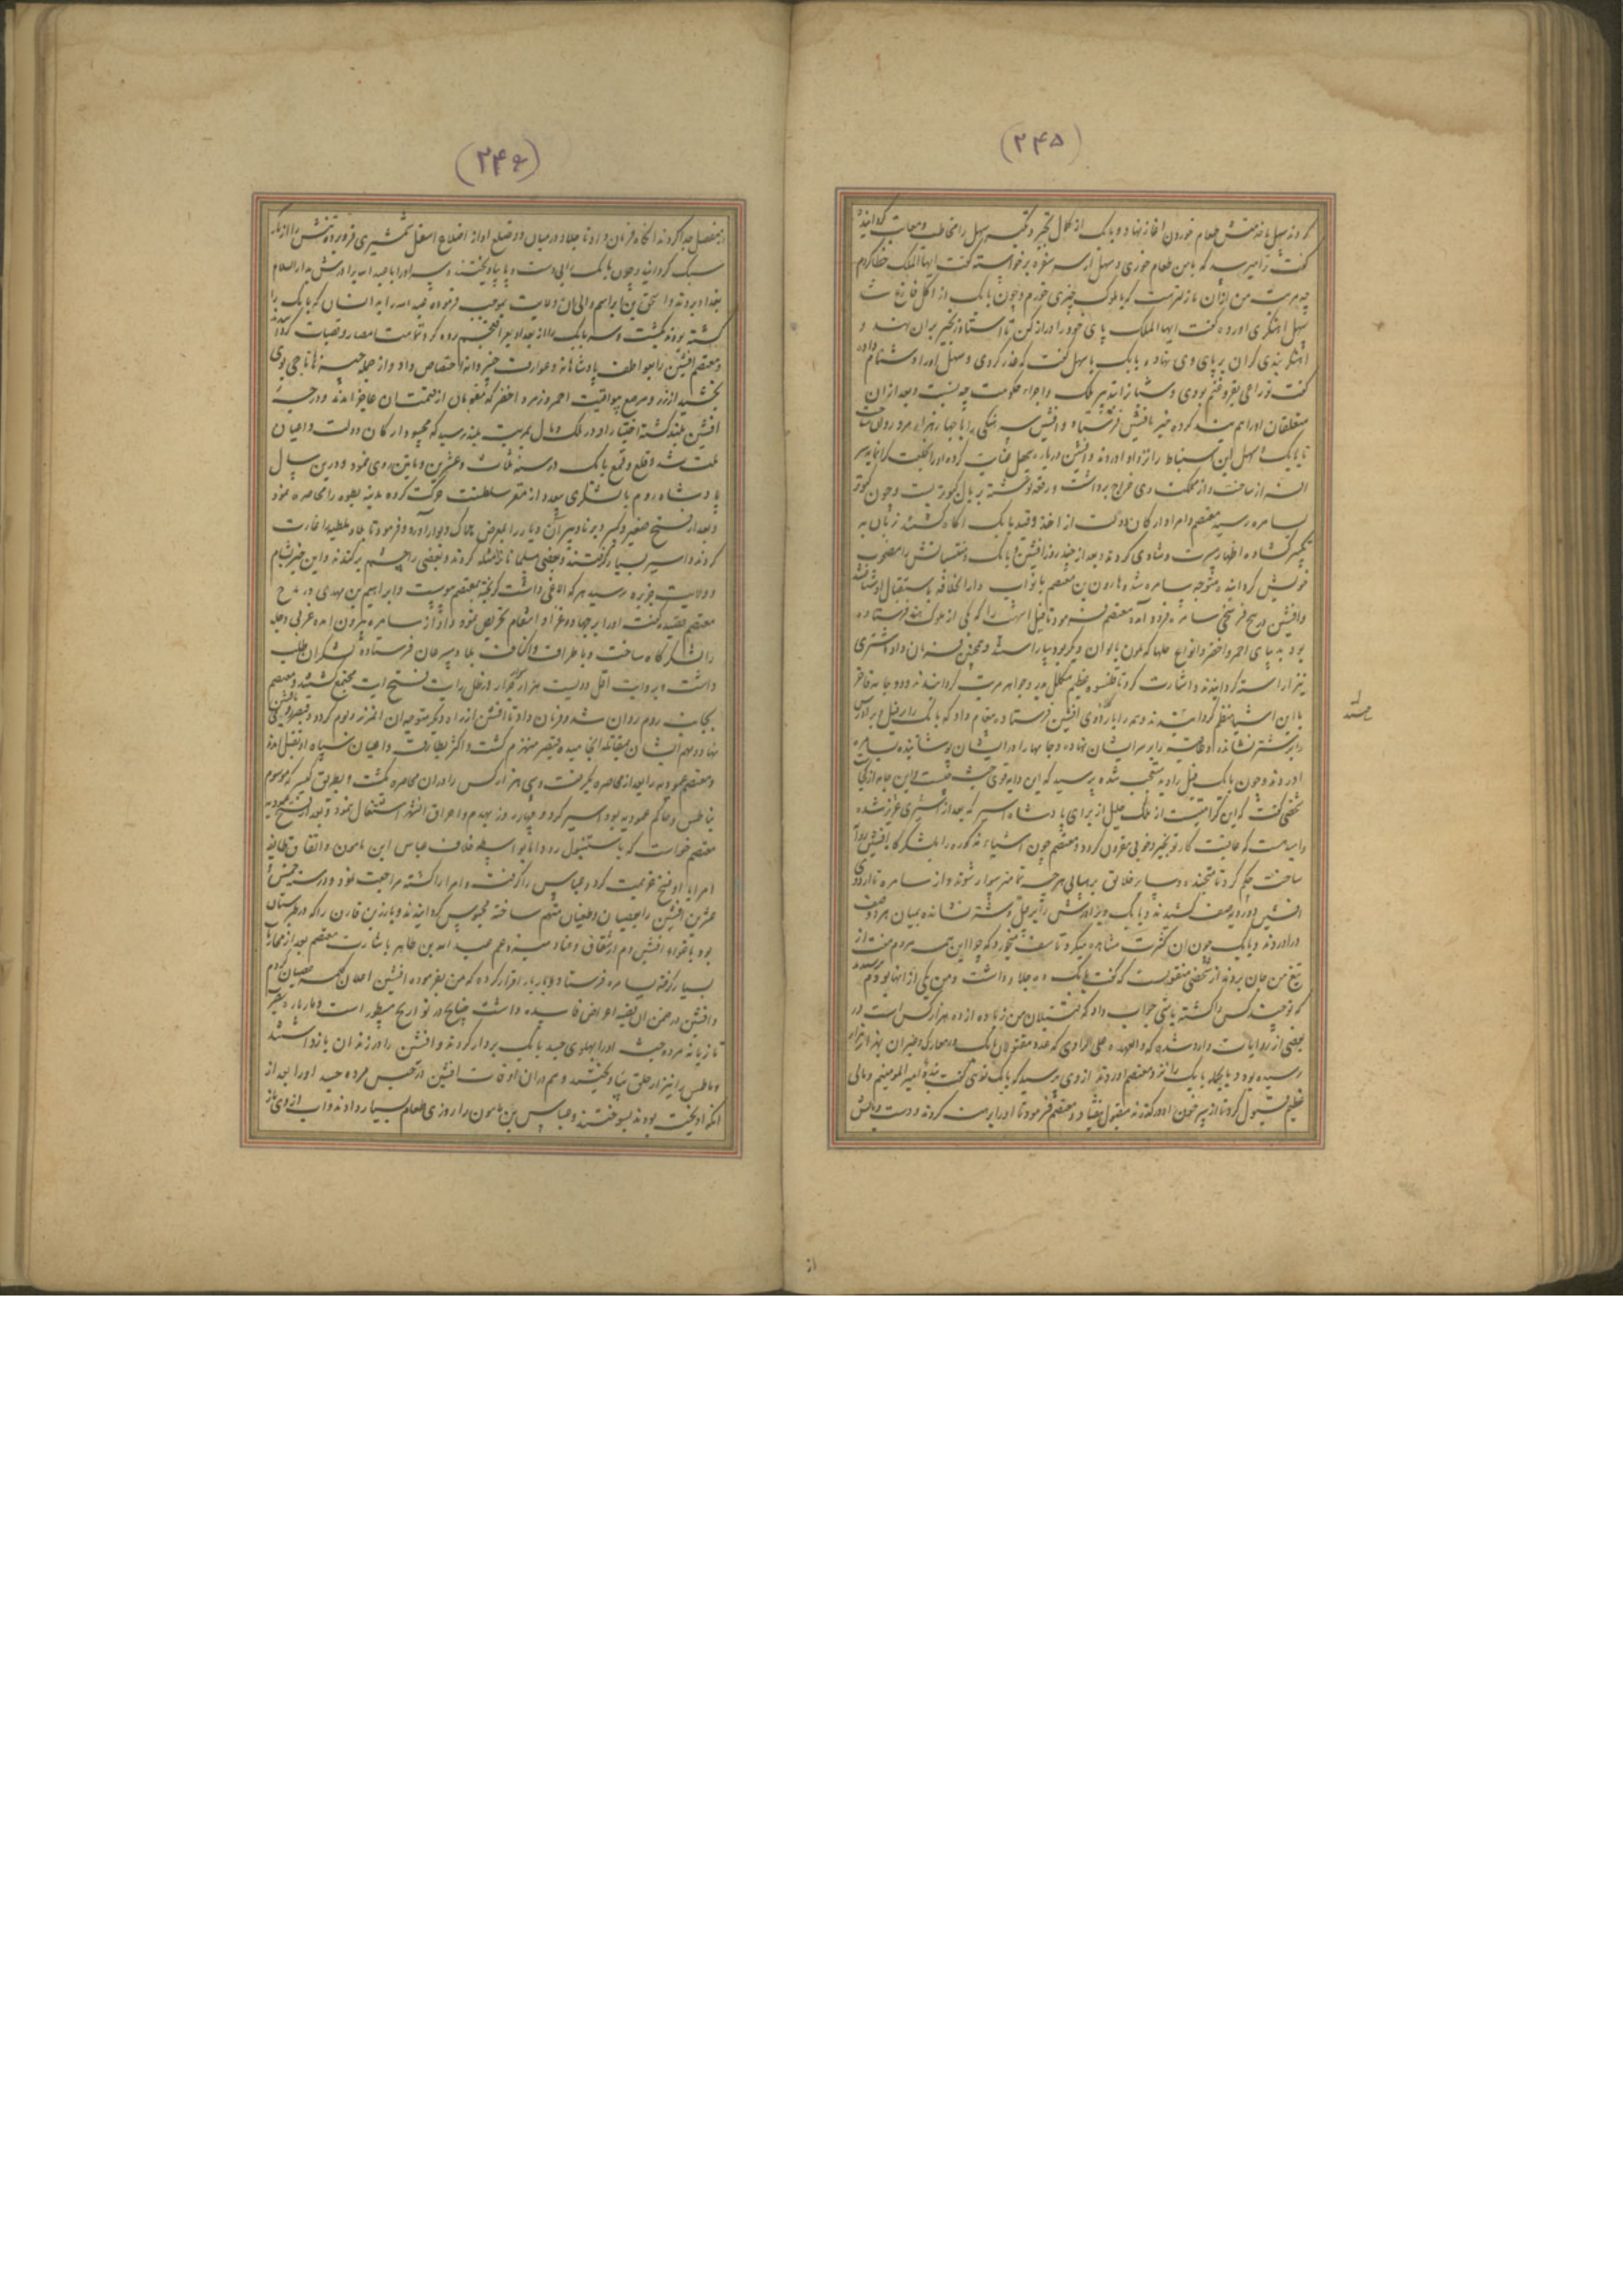 (۲۴۵)
کردند سهل با او بنشست طعام خوردن آغاز نهاد و بابک از کمال تجبر و تکبر سهل را مخاطب و معاتب گردانید
گفت ترا میرسد که با من طعام خوری و سهل از سر سفره برخواسته گفت ایها الملک خطا کردم
چه مرتبت من ازان نازلترست که با ملوک چیزی خورم و چون بابک از اکل فارغ شد
سهل آهنگری آورده گفت ایها الملک پای خود را دراز کن تا استاد زنجیر بران نهد و
آهنگر بندی گران بر پای وی نهاد و بابک با سهل گفت که غدر کردی و سهل او را دشنام داده
گفت تو راعی بقر و غنم بودی و شبانرا تدبیر ملک و اجراء حکومت چه نسبت و بعد ازان
متعلقان او را هم بند کرده خبر بافشین فرستاد و افشین سرهنگی را با چهار هزار مرد روان ساخت
تا بابک و سهل ابن سنباط را نزد او آوردند و افشین درباره سهل عنایت کرده او را بخلعت گرانمایه سر
افراز ساخت و از مملکت وی خراج برداشت و رقعه نوشته بر بال کبوتر بست و چون کبوتر
بسامره رسید معتصم و امرا و ارکان دولت از اخذ و قید بابک آگاه گشتند زبان به
تکبیر گشاده اظهار مسرت و شادی کردند و بعد از چند روز افشین بابک و منتسبانش را مصحوب
خویش گردانیده متوجه سامره شد و هارون بن معتصم با نواب دارالخلافه باستقبال او شتافتند
و افشین در پنج فرسخی سامره فرود آمد معتصم فرمود تا فیل اشهب را که یکی از ملوک هند فرستاده
بود به دیبای احمر و اخضر و انواع حلها که بلون بالوان دیگر بود بیاراستند و همچنین فرمان داد تا شتری
نیز آراسته گردانیدند و اشارت کرد تا قلنسوه عظیم مکلل بدر و جواهر مرتب گردانیدند و دو جامه فاخر
با این اشیا منظم گردانیدند و همه را باردوی افشین فرستاده پیغام داد که بابک را بر فیل و برادرش
را بر شتر نشانده و کلاه را بر سر ایشان نهاده و جامها را در ایشان پوشانیده بسامره
آوردند و چون بابک فیل را دید متعجب شده پرسید که این دابه قوی جثه چیست و این جامه از کیست
شخصی گفت که این کرامتیست از ملک جلیل از برای پادشاه اسیر که بعد از عزیزی ذلیل شده
و امید هست که عاقبت کار تو بخیر و خوبی مقرون گردد و معتصم چون اشیاء مذکوره را بلشکرگاه افشین روان
ساخت حکم کرد تا متجنده و سایر خلایق بر بهایی هرچه تمامتر سوار شوند و از سامره تا اردوی
افشین دو رویه صف کشیدند و بابک و برادرش را بر فیل و شتر نشانده بمیان هر دو صف
درآوردند و بابک چون آن کثرت مشاهده میکرد تاسف میخورد که چرا این همه مردم مفت از
تیغ من جان بردند از شخصی منقولست که گفت بابک ده جلاد داشت و من یکی از آنها بودم پرسیدند
که تو چند کس را کشته باشی جواب داد که قتیلان من زیاده از ده هزار کس است و در
بعضی از روایات وارد شده که والعهده علی الراوی که عدد مقتولان بابک در معارک و غیر آن بهزار هزار
رسیده بود و بالجمله بابک را نزد معتصم آوردند از وی پرسید که بابک توئی گفت بنده امیرالمؤمنینم و مالی
عظیم قبول کرد تا از سر خون او درگذرند مقبول نیفتاد و معتصم فرمود تا او را برهنه کردند و دست و پایش
از
(۲۴۶)
از مفصل جدا کردند آنگاه فرمان داد تا جلاد در میان دو ضلع او از اضلاع اسفل شمشیری فرو برده تنش را از بار
سبک گردانید و چون بابک را بی دست و پا بیاویختند و سر او را با عبدالله برادرش بدارالسلام
بغداد بردند و اسحق بن ابراهیم والی آن ولایت بموجب فرموده عبدالله را بدانسان که بابک را
کشته بودند بکشت و سر بابک را از بغداد بعراق عجم برده گرد تمامت امصار و قصبات گردانیدند
و معتصم افشین را بعواطف پادشاهانه و عوارف خسروانه اختصاص داد و از جمله چیزها تاجی بوی
بخشید از زر و مرصع بیواقیت احمر و زمرد اخضر که مقومان از قیمت آن عاجز آمدند و درجه
افشین بلند گشته اختیار او در ملک و مال بمرتبه بلند رسید که محسود ارکان دولت و اعیان
ملت شد و قلع و قمع بابک در سنه ثلاث و عشرین و ماتین روی نمود و درین سال
پادشاه روم با لشکری بیعدد از مقر سلطنت حرکت کرده مدینه زبطره را محاصره نمود
و بعد از فتح صغیر و کبیر و برنا و پیر آن دیار را بعرض هلاک و بوار آورد و فرمود تا بلاد ملطیه را غارت
کردند و اسیر بسیار گرفتند و بعضی مسلمانان را مثله کردند و بعضی را چشم برکندند و این خبر بشام
و ولایت جزیره رسید هر که الاغی داشت گریخته بمعتصم پیوست و ابراهیم بن مهدی در مدح
معتصم قصیده گفت او را بر جهاد و غزا و انتقام تحریص نمود و او از سامره بیرون آمده غربی دجله
را لشکرگاه ساخت و باطراف و اکناف بلاد مسرعان فرستاده لشکریان طلب
داشت و بروایت اقل دویست هزار سوار در ظل رایت فتح آیت مجتمع گشتند و معتصم
بجانب روم روان شد و فرمان داد تا افشین از راه دیگر متوجه آن مرز و بوم گردد و قیصر و افشین
نهاد و مهم ایشان بمقاتله انجامید و قیصر منهزم گشت و اکثر بطارقه و اعیان سپاه او بقتل آمدند
و معتصم عموریه را بعد از محاصره بگرفت و سی هزار کس را در آن محاصره بکشت و بطریق کبیر که موسوم
بناطس و حاکم عموریه بود اسیر کرد و چهار روز بهدم و احراق آن شهر اشتغال نمود و بعد از فتح عموریه
معتصم خواست که باستنبول رود اما بواسطه خلاف عباس ابن مامون و اتفاق طایفه
امرا با او فسخ عزیمت کرد و عباس را گرفت و امرا را کشته مراجعت نمود و در سنه خمس و
عشرین افشین را بعصیان و طغیان متهم ساخته محبوس گردانیدند و مازیار بن قارن را که در طبرستان
بود باغواء افشین دم از شقاق و عناد میزد و هم عبدالله بن طاهر باشارت معتصم بعد از محاربات
بسیار گرفته بسامره فرستاد و مازیار اقرار کرده که من بفرموده افشین اعلان کلمه عصیان کردم
و افشین در ضمن آن قضیه اغراض فاسده داشت چنانچه در تواریخ مسطور است و مازیار بضرب
تازیانه مرده جثه او را بپهلوی جسد بابک بردار کردند و افشین را در زندان بازداشتند
و ناطس را نیز از حلق بیاویختند و هم در آن اوقات افشین در حبس مرده جسد او را بعد از
آنکه آویخته بودند بسوختند و عباس بن مامون را روزی طعام بسیار دادند و آب از وی باز